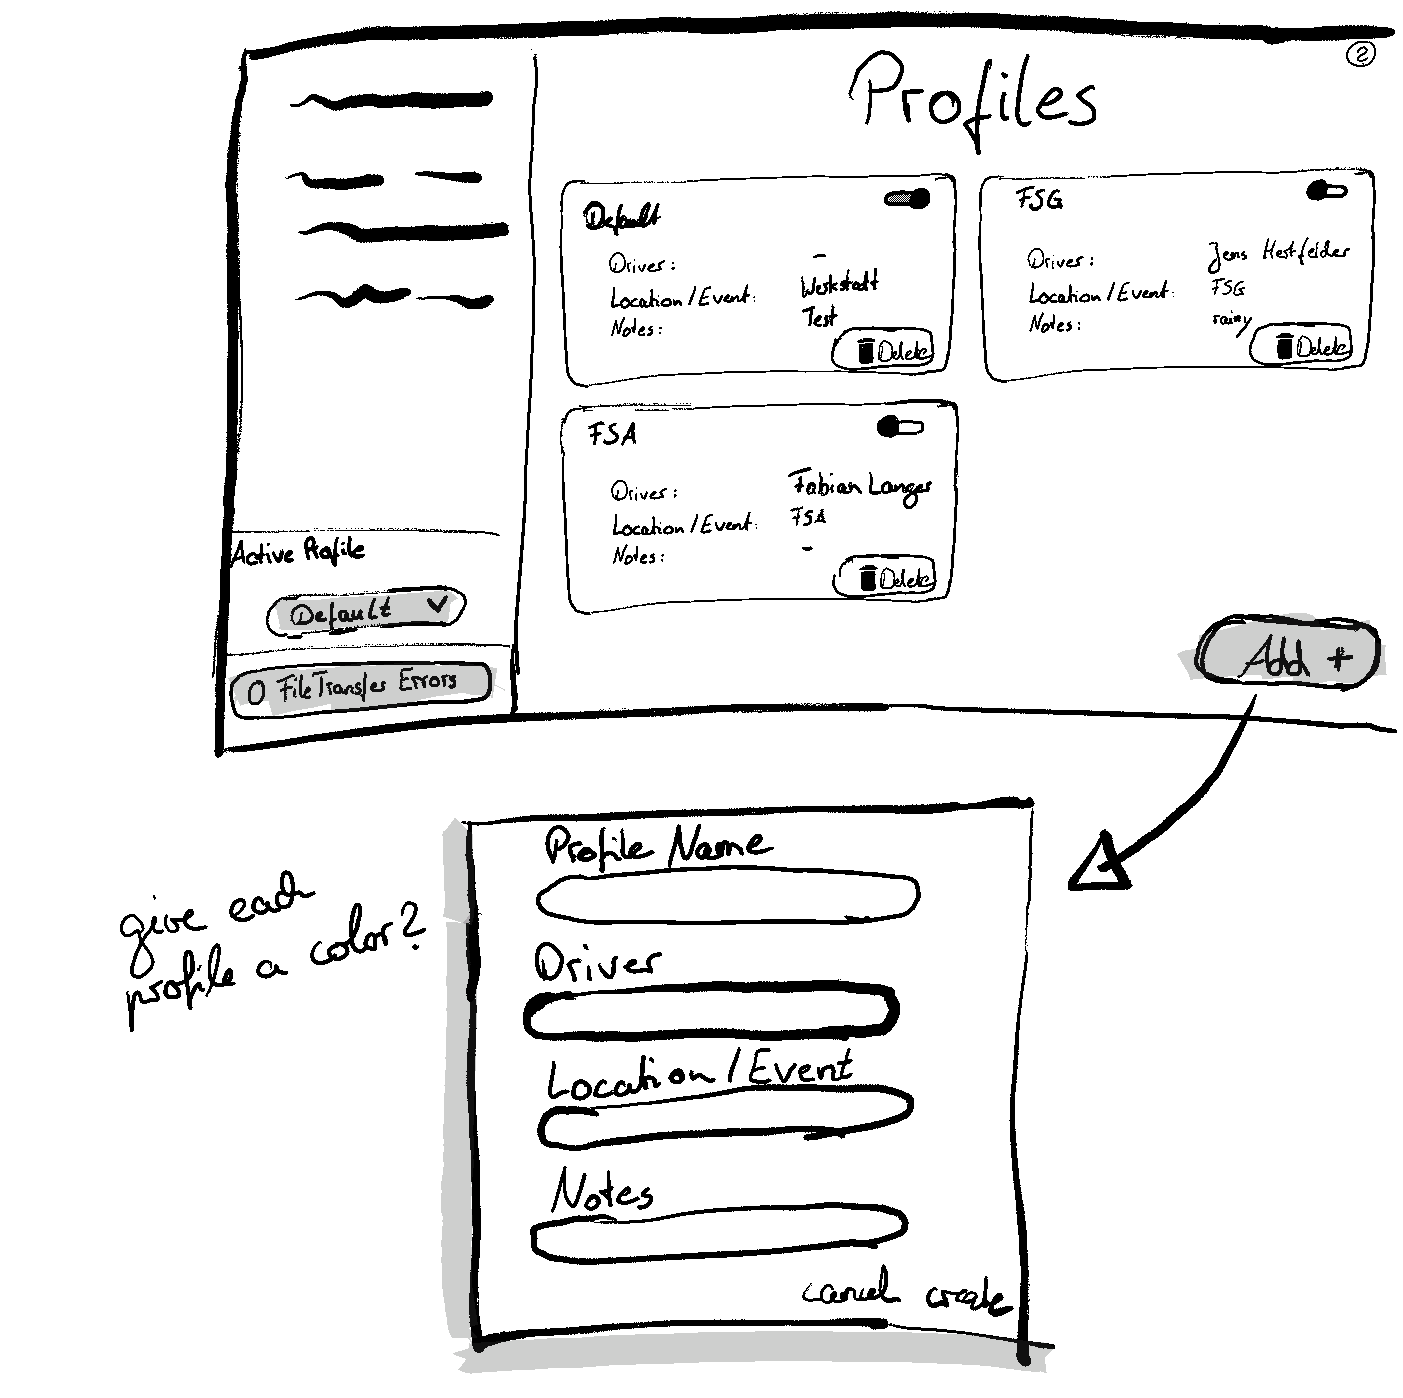 Profiles
2
Default
Driver: -
Location/Event: Werkstatt
Notes: Test
Delete
FSG
Driver: Jens Hestfelder
Location/Event: FSG
Notes: rainy
Delete
FSA
Driver: Fabian Langer
Location/Event: FSA
Notes: -
Delete
Active Profile
Default
0 FileTransfer Errors
Add +
give each
profile a color?
Profile Name
Driver
Location/Event
Notes
cancel create